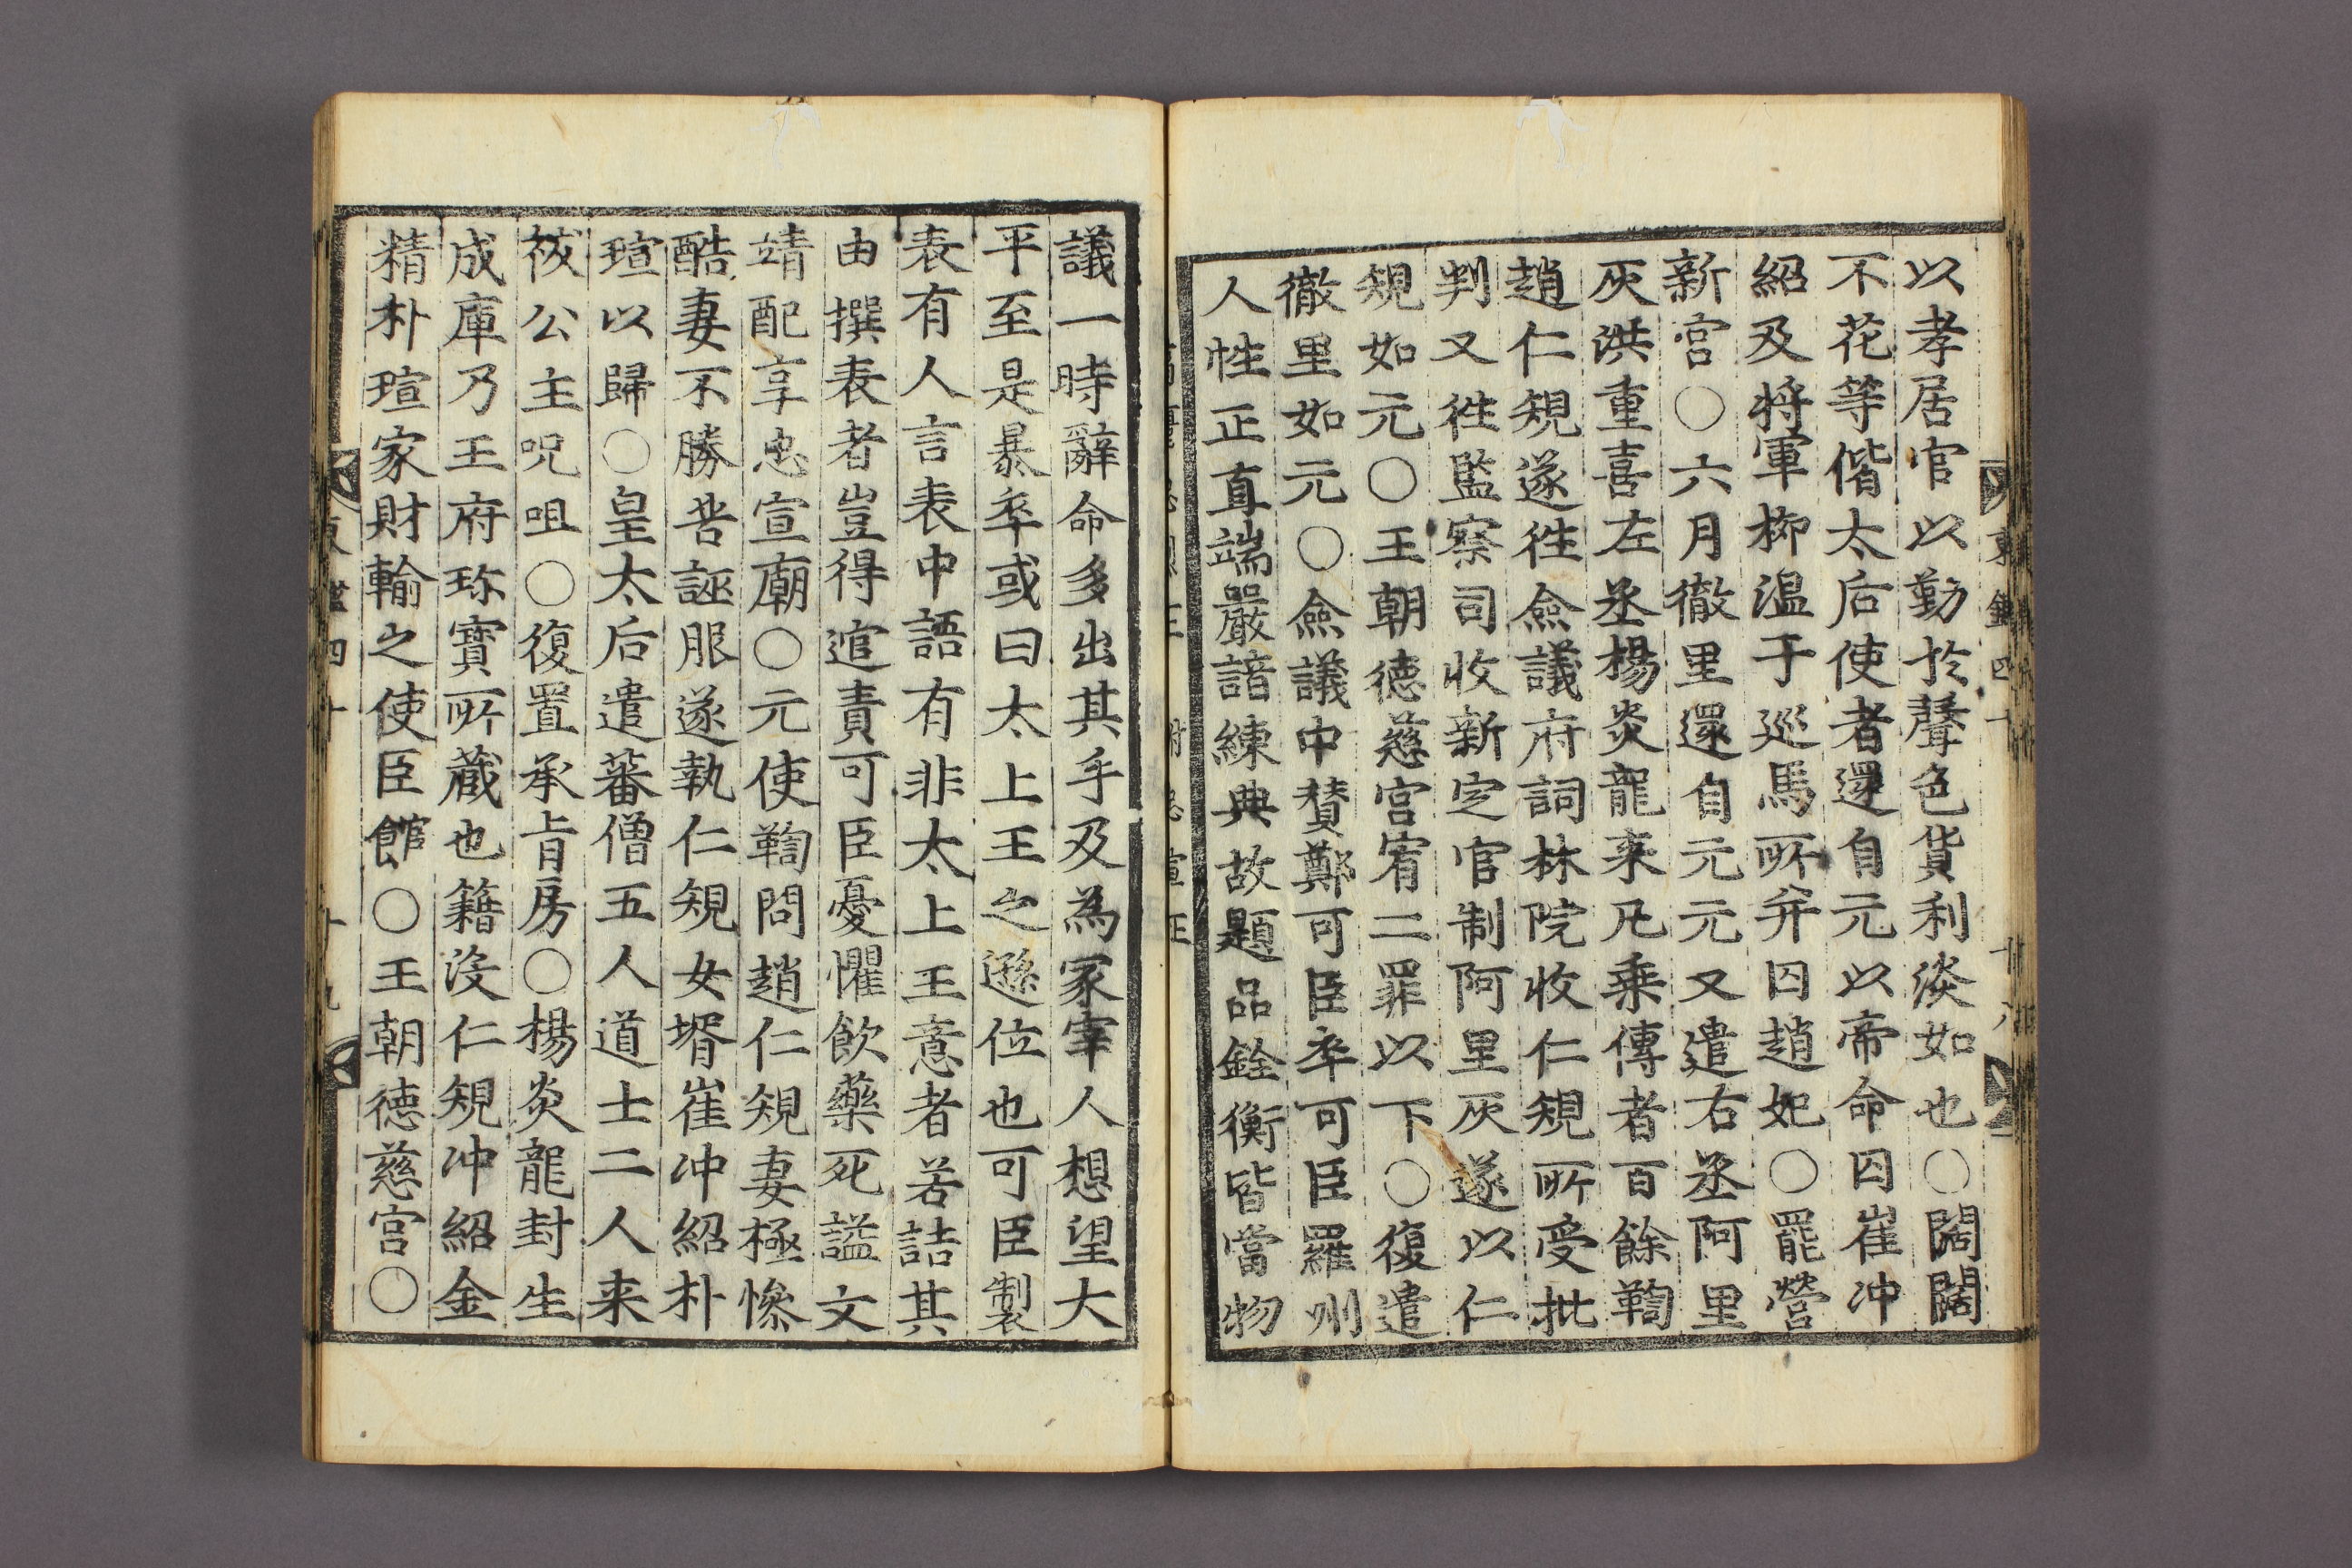 以孝居官以勤於聲色貨利淡如也○闊闊
不花等偕太后使者還自元以帝命囚崔冲
紹及將軍柳温于巡馬所弁囚趙妃○罷營
新宮○六月徹里還自元元又遣右丞阿里
灰洪重喜左丞楊炎龍来凡乗傳者百餘鞫
趙仁規遂徃僉議府詞林院收仁規所受批
判又徃監察司收新定官制阿里灰遂以仁
規如元○王朝德慈宮宥二罪以下○復遣
徹里如元○僉議中賛鄭可臣卒可臣羅州
人性正直端嚴諳練典故題品銓衡皆當物
議一時辭命多出其手及為冢宰人想望大
平至是暴卒或曰太上王之遜位也可臣製
表有人言表中語有非太上王意者若詰其
由撰表者豈得逭責可臣憂懼飮藥死謚文
靖配享忠宣廟○元使鞫問趙仁規妻極慘
酷妻不勝苦誣服遂執仁規女壻崔冲紹朴
瑄以歸○皇太后遣蕃僧五人道士二人来
祓公主呪咀○復置承旨房○楊炎龍封生
成庫乃王府珎寳所藏也籍沒仁規冲紹金
精朴瑄家財輸之使臣館○王朝德慈宮○